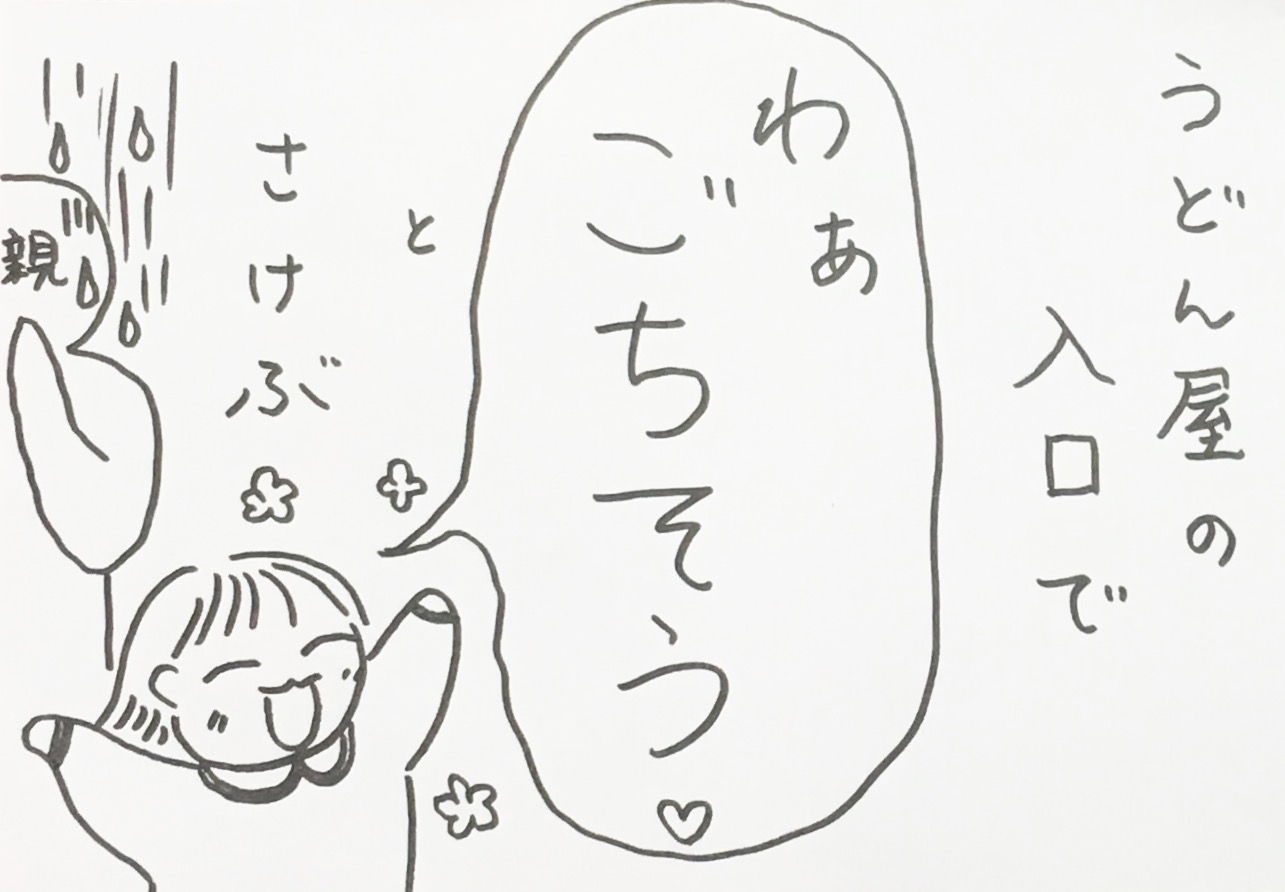 うどん屋の
入口で
わぁ
ごちそぅ♡
と
さけぶ
親